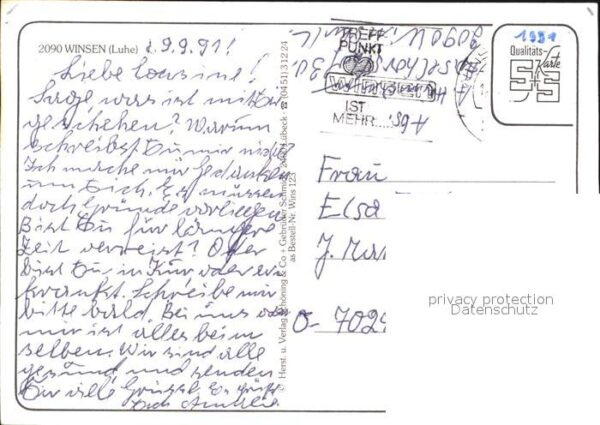 2090 WINSEN (Luhe) d. 9.9.91!
Liebe Cousine!
Sage was ist mit Dir
geschehen? Warum
schreibst Du mir nicht?
Ich mache mir Gedanken
um Dich. Es müssen
doch Gründe vorliegen
Bist Du für längere
Zeit verreist? Oder
bist Du in Kur oder er-
krankt. Schreibe mir
bitte bald. Bei uns oder
mir ist alles beim
selben. Wir sind alle
gesund und senden
Dir viele Grüsse. Es grüßt
Dich
Herst. u. Verlag Schöning & Co + Gebrüder Schmidt, Lübeck · ☎ (0451) 31224
Bestell-Nr. Wins 123
TREFF
PUNKT
WINSEN
IST
MEHR...
Abs.
2090 Winsen/L.
1991
Qualitäts-
Karte
S+S
Frau
Elsa
J.
O-7024
privacy protection
Datenschutz